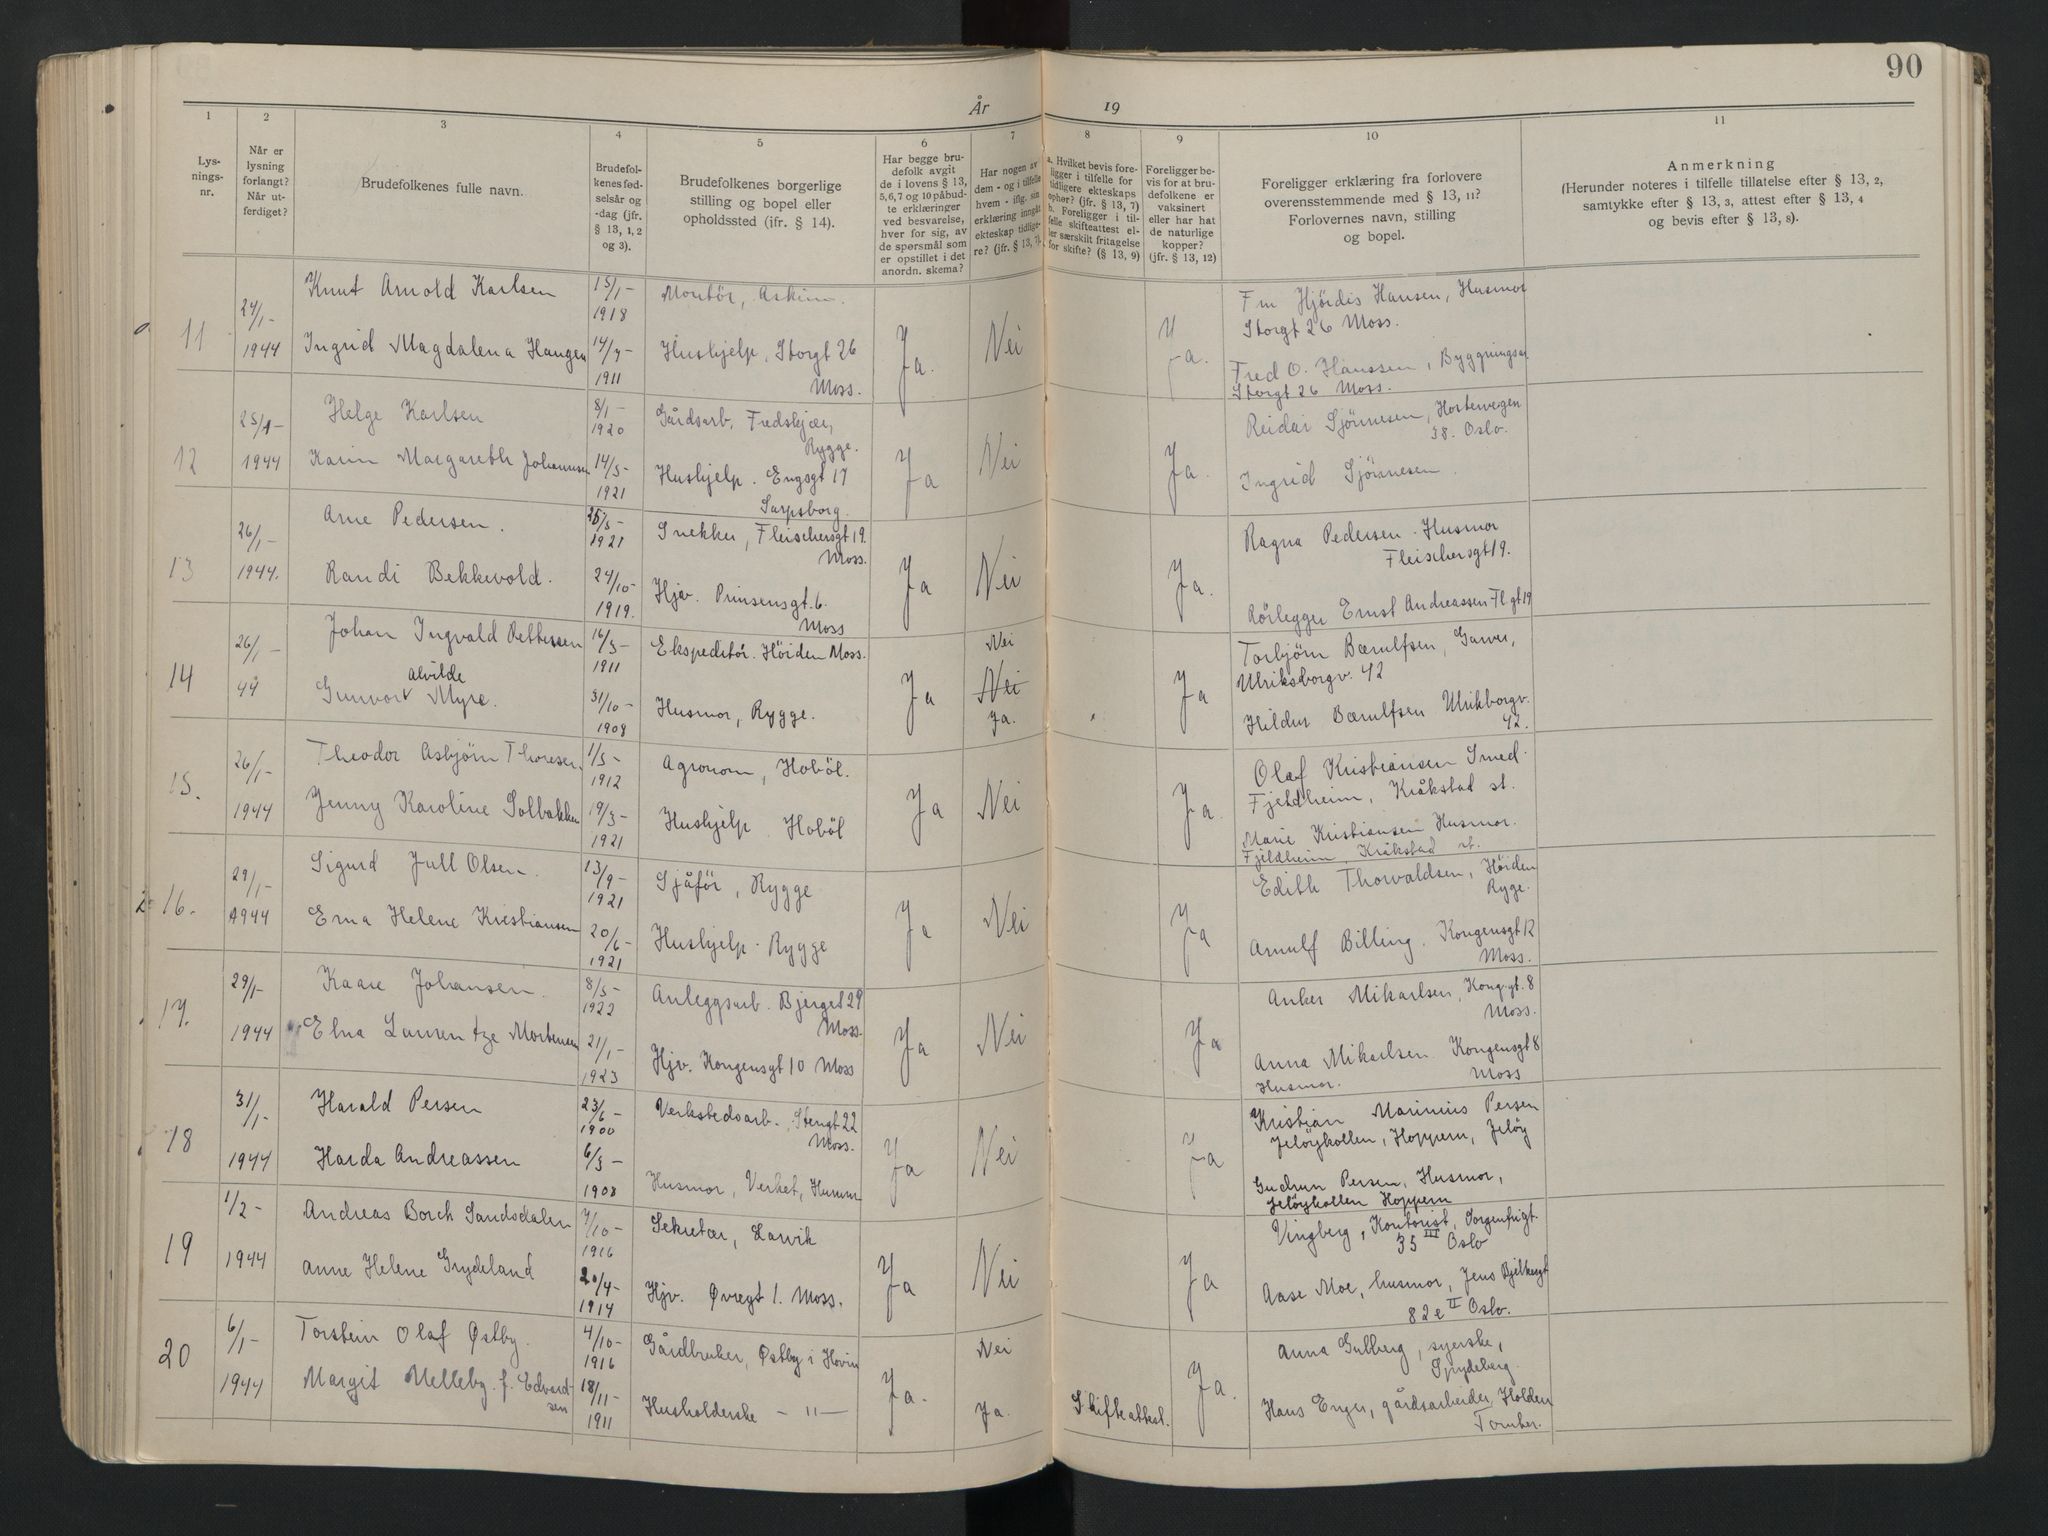 90
År 19
1 2 3 4 5 6 7 8 9 10 11
Lys-
nings-
nr.
Når er
lysning
forlangt?
Når ut-
ferdiget?
Brudefolkenes fulle navn.
Brudefol-
kenes fød-
selsår og
-dag (jfr.
§ 13, 1, 2
og 3).
Brudefolkenes borgerlige
stilling og bopel eller
opholdssted (jfr. § 14).
Har begge bru-
defolk avgit
de i lovens § 13,
5, 6, 7 og 10 påbud-
te erklæringer
ved besvarelse,
hver for sig, av
de spørsmål som
er opstillet i det
anordn. skema?
Har nogen av
dem - og i tilfelle
hvem - iflg. sin
erklæring inngått
ekteskap tidlige-
re? (jfr. § 13, 7).
a. Hvilket bevis fore-
ligger i tilfelle for
tidligere ekteskaps
ophør? (jfr. § 13, 7)
b. Foreligger i til-
felle skifteattest el-
ler særskilt fritagelse
for skifte? (§ 13, 9)
Foreligger be-
vis for at bru-
defolkene er
vaksinert
eller har hat
de naturlige
kopper?
(jfr. § 13, 12)
Foreligger erklæring fra forlovere
overensstemmende med § 13, 11?
Forlovernes navn, stilling
og bopel.
Anmerkning
(Herunder noteres i tilfelle tillatelse efter § 13, 2,
samtykke efter § 13, 3, attest efter § 13, 4
og bevis efter § 13, 8).
11
24/1-
1944
Knut Arnold Karlsen
Ingrid Magdalena Haugen
15/1-
1918
14/7-
1911
Montör, Askim.
Hushjelp, Storgt 26
Moss.
Ja.
Nei
Ja.
Fru Hjördis Hansen, Husmor
Storgt 26 Moss.
Fred O. Hanssen, Byggningsar
Storgt 26 Moss.
12
25/1-
1944
Helge Karlsen
Karin Margareth Johannsen
8/1-
1920
14/5-
1921
Gårdsarb. Fredskjær,
Rygge.
Hushjelp. Engsgt 17
Sarpsborg.
Ja
Nei
Ja.
Reidar Sjönnesen,
38. Oslo.
Ingrid Sjönnesen.
13
26/1-
1944.
Arne Pedersen.
Randi Bekkevold.
25/5-
1921
24/10-
1919.
Snekker, Fleischersgt 19.
Moss.
Hjv. Prinsensgt. 6.
Moss
Ja
Nei
Ja.
Ragna Pedersen. Husmor
Fleischersgt 19.
Rörlegger Ernst Andreassen Fl.gt 19
14
26/1-
44
Johan Ingvald Pettersen
alvilde
Gunvort Myre.
16/5-
1911
31/10-
1908
Ekspeditör. Höiden Moss.
Husmor, Rygge.
Ja
Nei
Nei
Ja.
Ja
Torbjörn Bærulfsen, Garver,
Ulriksborgv. 42
Hildur Bærulfsen Ulrikborgv.
42.
15.
26/1-
1944
Theodor Asbjörn Thoresen.
Jenny Karoline Solbakken
1/5-
1912
19/3-
1921
Agronom, Hoböl.
Hushjelp. Hoböl
Ja
Nei
Ja.
Olaf Kristiansen Smed.
Fjeldheim, Kråkstad st.
Marie Kristiansen Husmor.
Fjeldheim, Kråkstad st.
16.
29/1-
1944
Sigurd Jull Olsen.
Erna Helene Kristiansen
13/9-
1921
20/6-
1921
Sjåför, Rygge
Hushjelp. Rygge
Ja
Nei
Ja
Edith Thorvaldsen, Höiden
Ryge.
Arnulf Billing. Kongensgt 12
Moss.
17.
29/1-
1944
Kaare Johansen.
Elna Laurentze Mortensen
8/5-
1922
21/1-
1923
Anleggsarb. Bjerget 29
Moss.
Hjv. Kongensgt 10 Moss
Ja
Nei
Ja
Anker Mikarlsen, Kong.gt. 8
Moss.
Anna Mikarlsen. Kongensgt 8
Husmor. Moss
18
31/1-
1944
Harald Persen
Harda Andreassen
23/6-
1900
6/3-
1908
Verkstedsarb., Stengt 22
Moss.
Husmor, Verket,
Ja
Nei
Ja
Kristian Marinius Persen
Jelöykollen, Hoppern, Jelöy
Gudrun Persen, Husmor,
Jelöykollen Hoppern
19
1/2-
1944
Andreas Borch Sandsdalen
Anne Helene Grydeland
7/10-
1916
20/4-
1914
Sekretær, Larvik
Hjv. Øvregt 1. Moss.
Ja
Nei
Ja
Vingberg, Kontorist, Sorgenfrigt.
35 III Oslo
Aase Moe, husmor, Jens Bjelkesgt
82e II Oslo.
20
6/1-
1944
Torstein Olaf Østby.
Margit Melleby. f. Edvard-
sen
4/10-
1916
18/11-
1911
Gårdbruker, Østby i Hovin
Husholderske - " -
Ja.
Nei
Ja.
Skifteattest.
Ja.
Anna Gulberg, syerske,
Spydeberg.
Hans Enger, gårdsarbeider, Holden
Tomter.